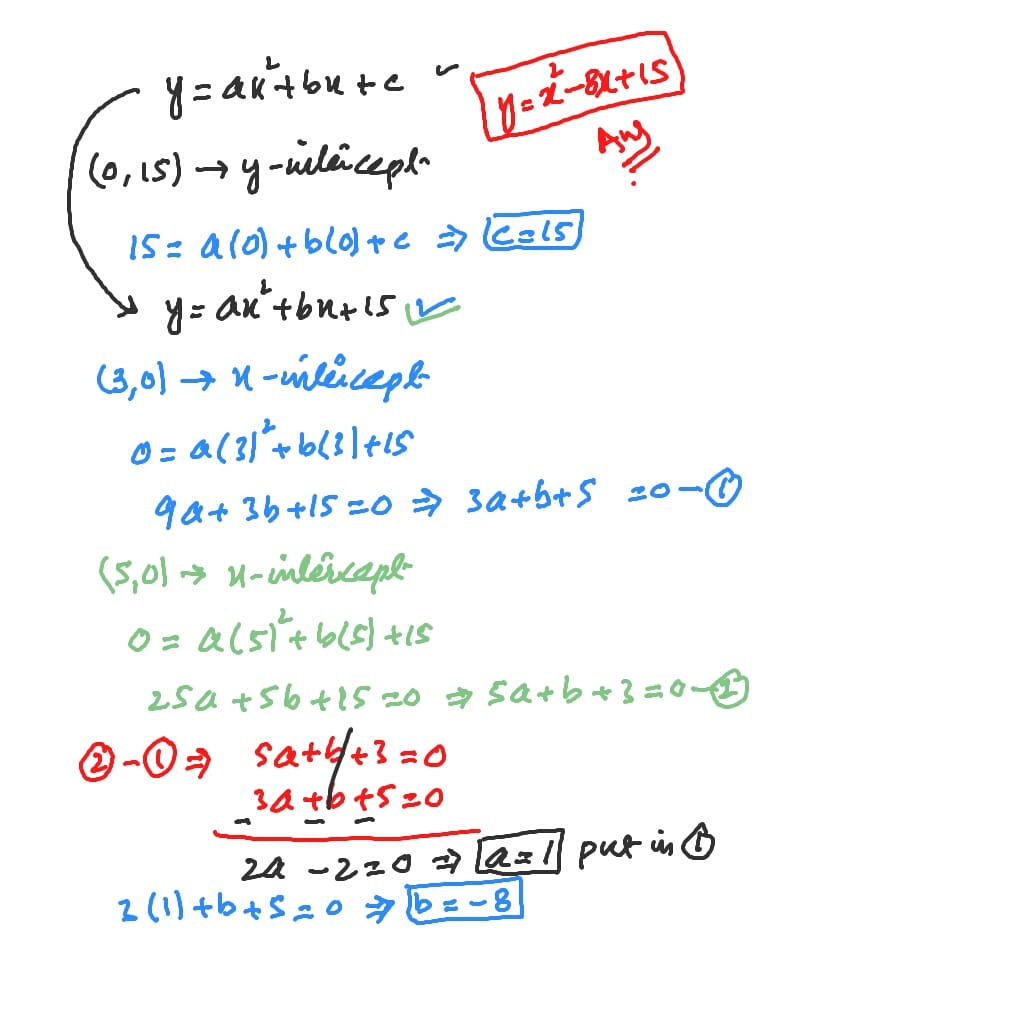 y = ax² + bx + c ✓
y = x² - 8x + 15
Ans
(0, 15) → y-intercept
15 = a(0) + b(0) + c ⇒ c = 15
y = ax² + bx + 15 ✓
(3,0) → x-intercept
0 = a(3)² + b(3) + 15
9a + 3b + 15 = 0 ⇒ 3a + b + 5 = 0 - ①
(5,0) → x-intercept
0 = a(5)² + b(5) + 15
25a + 5b + 15 = 0 ⇒ 5a + b + 3 = 0 - ②
② - ① ⇒ 5a + b + 3 = 0
3a + b + 5 = 0
- - -
2a - 2 = 0 ⇒ a = 1 put in ①
3(1) + b + 5 = 0 ⇒ b = -8